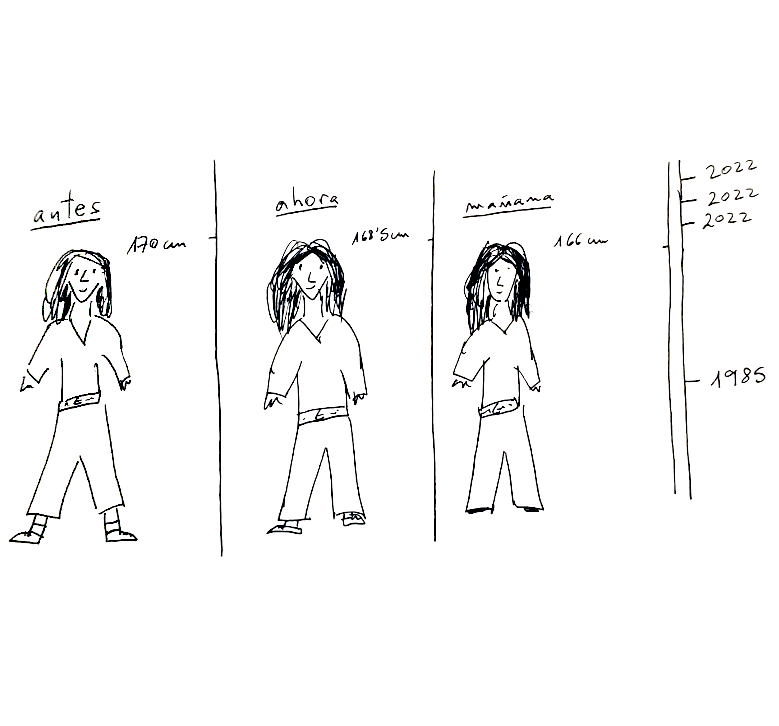 antes
170 cm
ahora
168'5 cm
mañana
166 cm
2022
2022
2022
1985